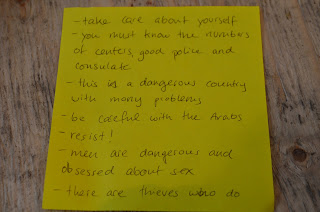 - take care about yourself
- you must know the numbers
of centers, good police and
consulate
- this is a dangerous country
with many problems
- be careful with the Arabs
- resist!
- men are dangerous and
obsessed about sex
- there are thieves who do